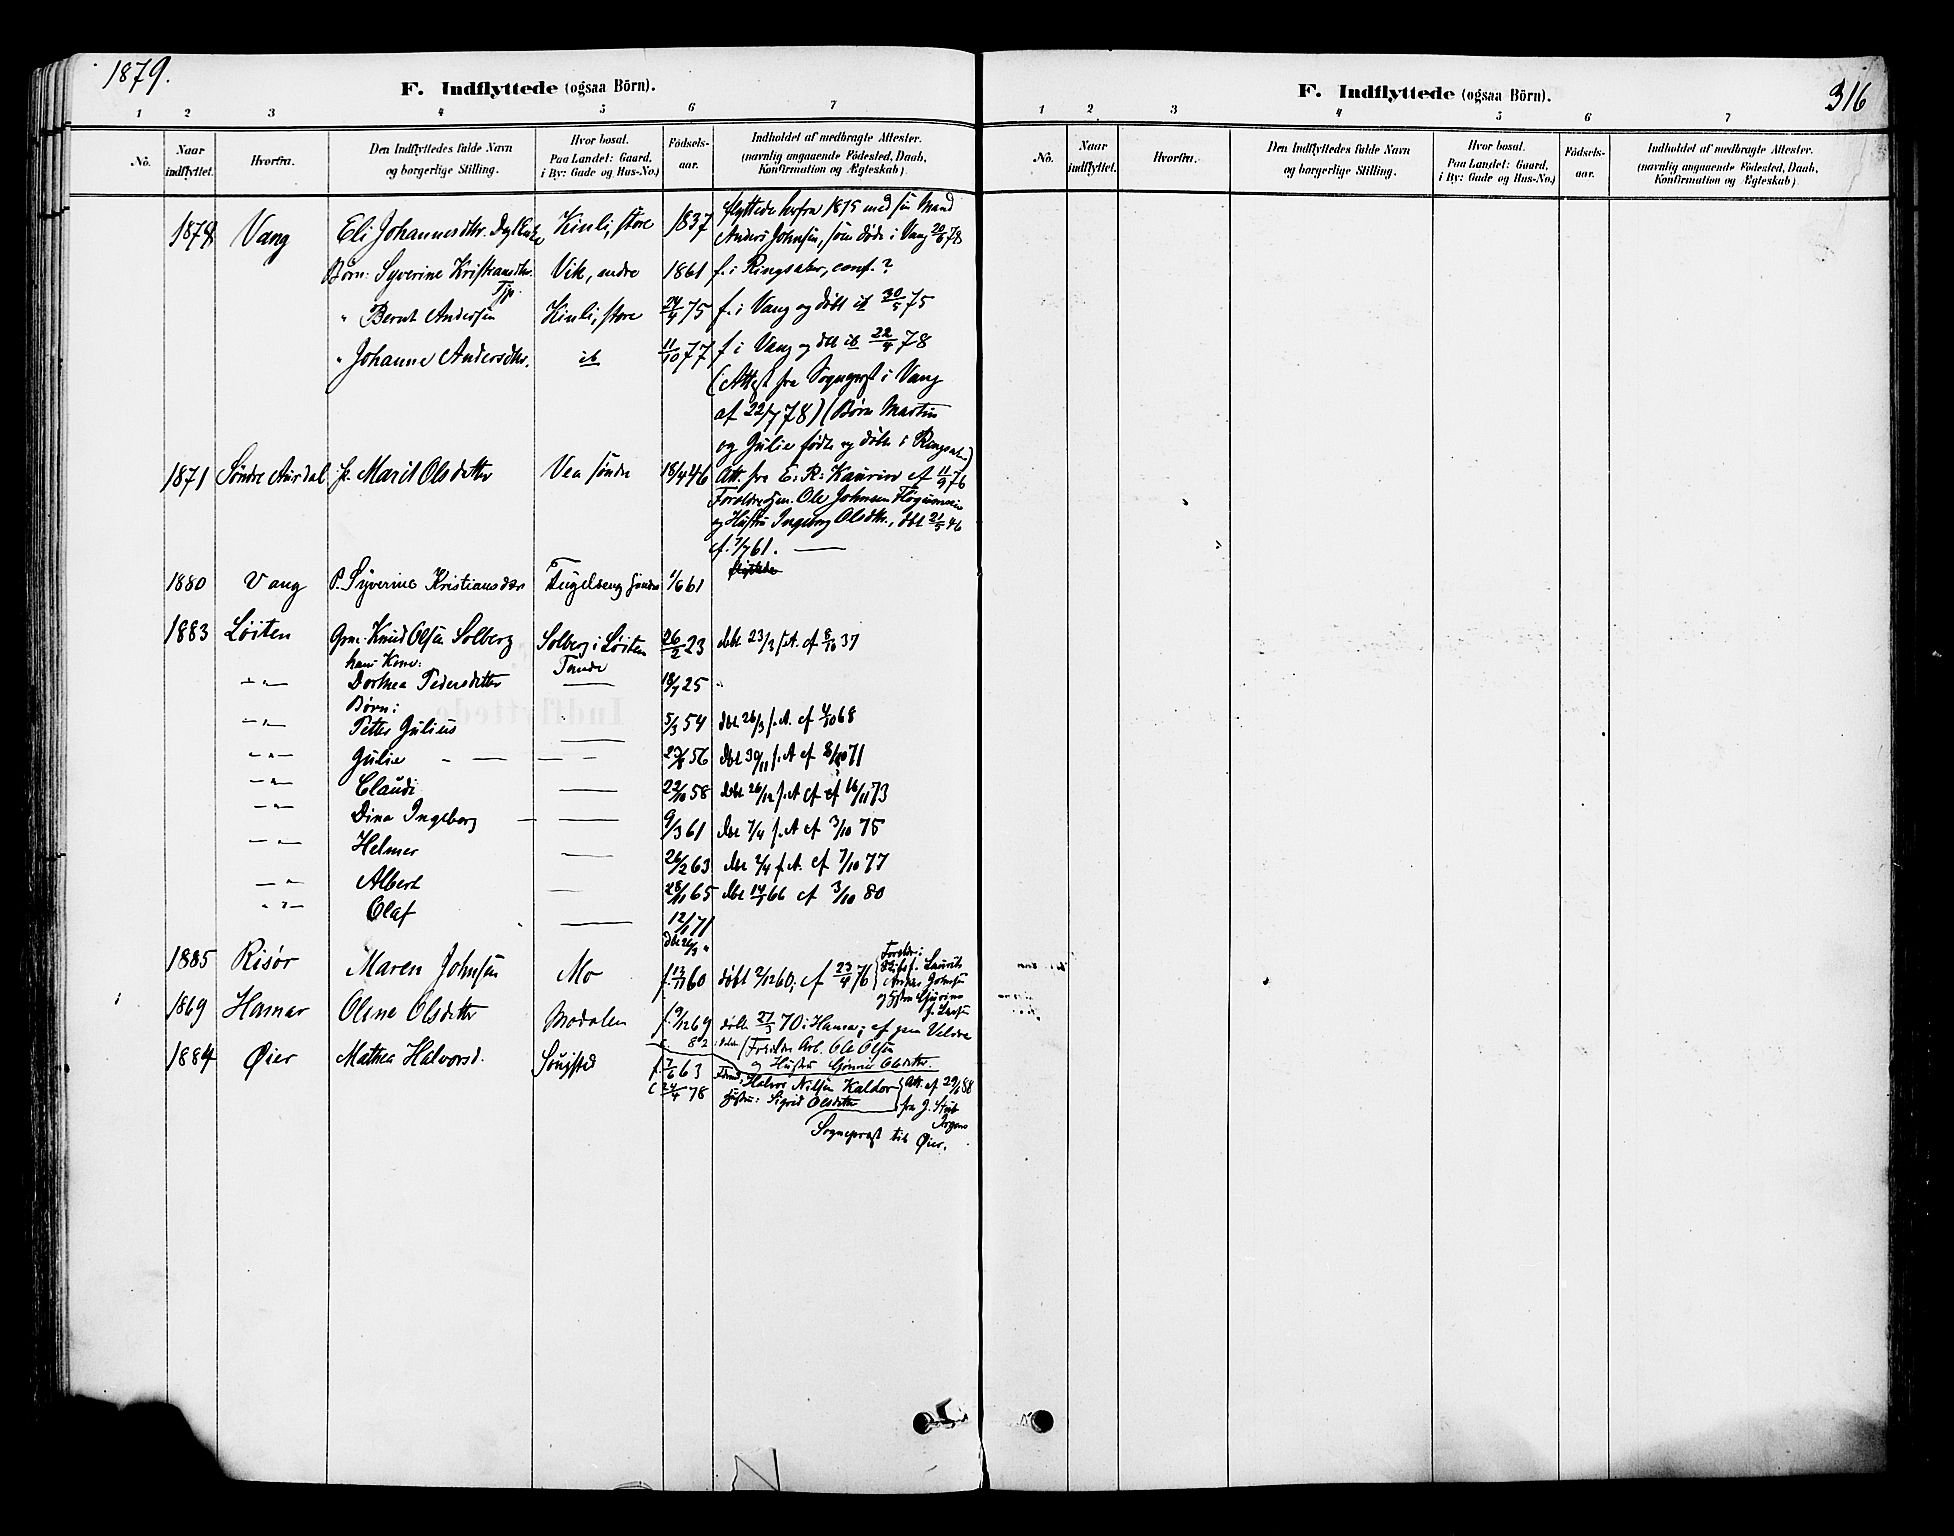 1879.
F. Indflyttede (ogsaa Börn).
1 2 3 4 5 6 7
No. Naar indflyttet. Hvorfra. Den Indflyttedes fulde Navn og borgerlige Stilling. Hvor bosat. Paa Landet: Gaard, i By: Gade og Hus-No.) Födsels-aar. Indholdet af medbragte Attester. (navnlig angaaende Födested, Daab, Konfirmation og Ægteskab)
Flyttede herfra 1875 med sin Mand
1878 Vang Eli Johannesdtr. Kinli, store 1837 Anders Johnsen, som døde i Vang 20/6 78
Børn: Syverine Kristiansdtr. Vik, nedre 1861 f. i Ringsaker, conf.?
Tjp.
" Bernt Andersen Kinli, store 24/4 75 f. i Vang og døbt ib 30/5 75
" Johanne Andersdtr. ib 11/10 77 f i Vang og dbt ib 22/4 78
(Attest fra Sogneprest i Vang
af 22/7 78) (Børn Martin
og Gulie fødte og døbte i Ringsaker)
1871 Søndre Aurdal p. Marit Olsdatter Vea søndre 18/4 46 Att. fra E. R. Kaurin af 11/9 76
Forældre: Ole Johnsen
og Hustru Ingeborg Olsdtr., dbt 21/5 46
cf. 7/7 61.
1880 Vang P. Syverine Kristiansdtr Fugelseng søndre 1/6 61
1883 Løiten Grm. Knud Olsen Solberg Solberg i Løiten 26/2 23 døbt 23/3 s.A. cf 8/10 37
hans Kone: Tande
" Dorthea Pedersdatter 18/7 25
Børn:
" Petter Gulius 5/3 54 dbt 26/3 s.A. cf 4/10 68
" Gulie 56 dbt 30/11 s.A cf 8/10 71
" Claudi 22/10 58 døbt 26/12 s.A cf 16/11 73
" Dina Ingeborg 9/3 61 dbt 7/4 s.A cf 3/10 75
" Helmer 26/2 63 dbt 2/4 s.A. cf 7/10 77
" Albert 28/11 65 dbt 14/1 66 cf 3/10 80
" Olaf 12/1 71
dbt 26/3 "
1885 Risør Maren Johnsen Mo f. 13/11 60 døbt 2/12 60; cf 23/4 76 Foreldre:
Laurits
Andreas Johnsen
1869 Hamar Oline Olsdatter Modalen f. 9/12 69 døbt 27/3 70 i Hamar; cf gm Veldre
c 82 (Foreldre Arb. Ole Olsen
og Hustru Gunnild Olsdatter.
1884 Øier Mathea Halvorsd. f. 7/6 63 Halvor Nilsen Kaldor Att. af 29/ 88
c 24/4 78 Hustru: Sigrid Olsdatter fra J. Stub
Sogneprest til Øier.
316
F. Indflyttede (ogsaa Börn).
1 2 3 4 5 6 7
No. Naar indflyttet. Hvorfra. Den Indflyttedes fulde Navn og borgerlige Stilling. Hvor bosat. Paa Landet: Gaard, i By: Gade og Hus-No.) Födsels-aar. Indholdet af medbragte Attester. (navnlig angaaende Födested, Daab, Konfirmation og Ægteskab)